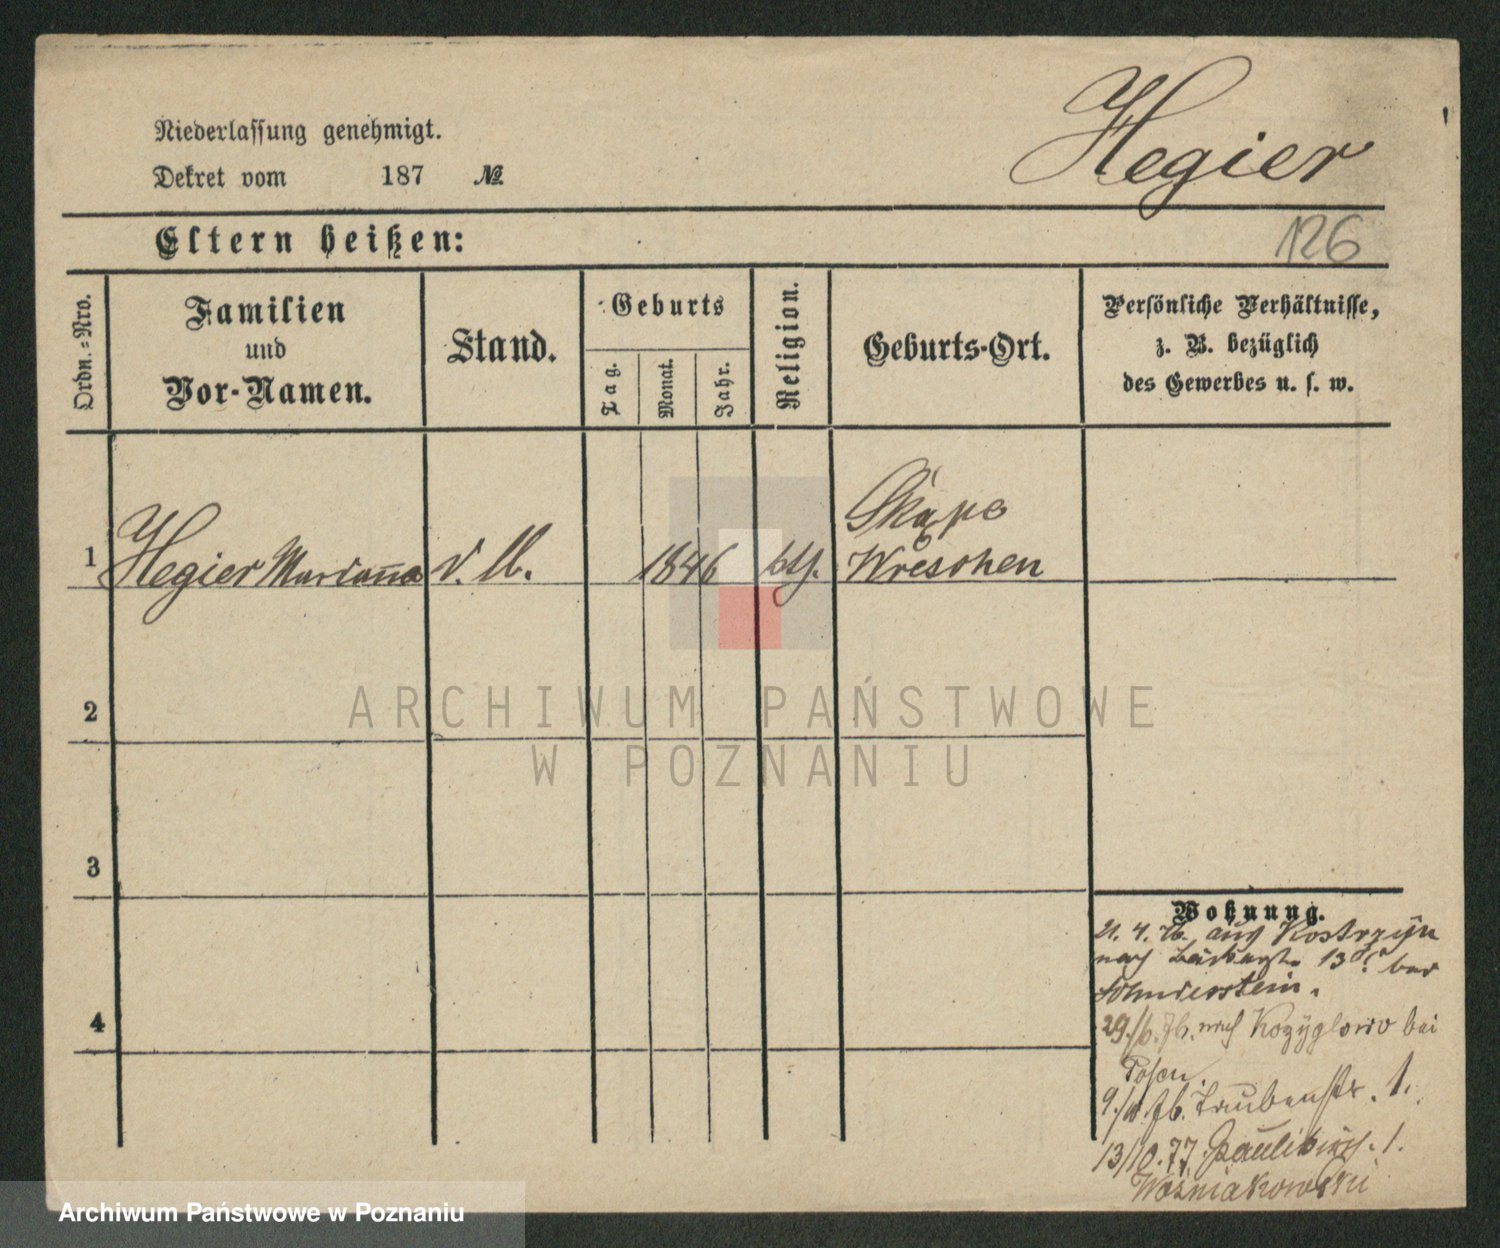 Hegier
Niederlassung genehmigt.
Dekret vom 187 №
126
Eltern heißen:
Ordn.=Nro.
Familien
und
Vor-Namen.
Stand.
Geburts
Tag.
Monat.
Jahr.
Religion.
Geburts-Ort.
Persönliche Verhältnisse,
z. B. bezüglich
des Gewerbes u. s. w.
1 Hegier Marianna
1846
Wreschen
2
3
4
ARCHIWUM PAŃSTWOWE
W POZNANIU
Wohnung.
21. 4. 76. aus Kostrzyn
nach 13 bei
29./6. 76. nach bei
Posen.
76. Taubenstr. 1.
13/10. 77. Paulikirch. 1.
Woźniakowski
Archiwum Państwowe w Poznaniu